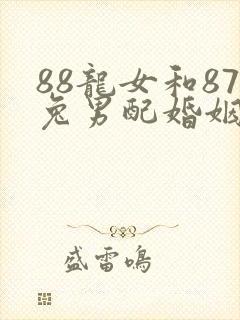 88龍女和87
兔男配婚姻
盛雷鳴